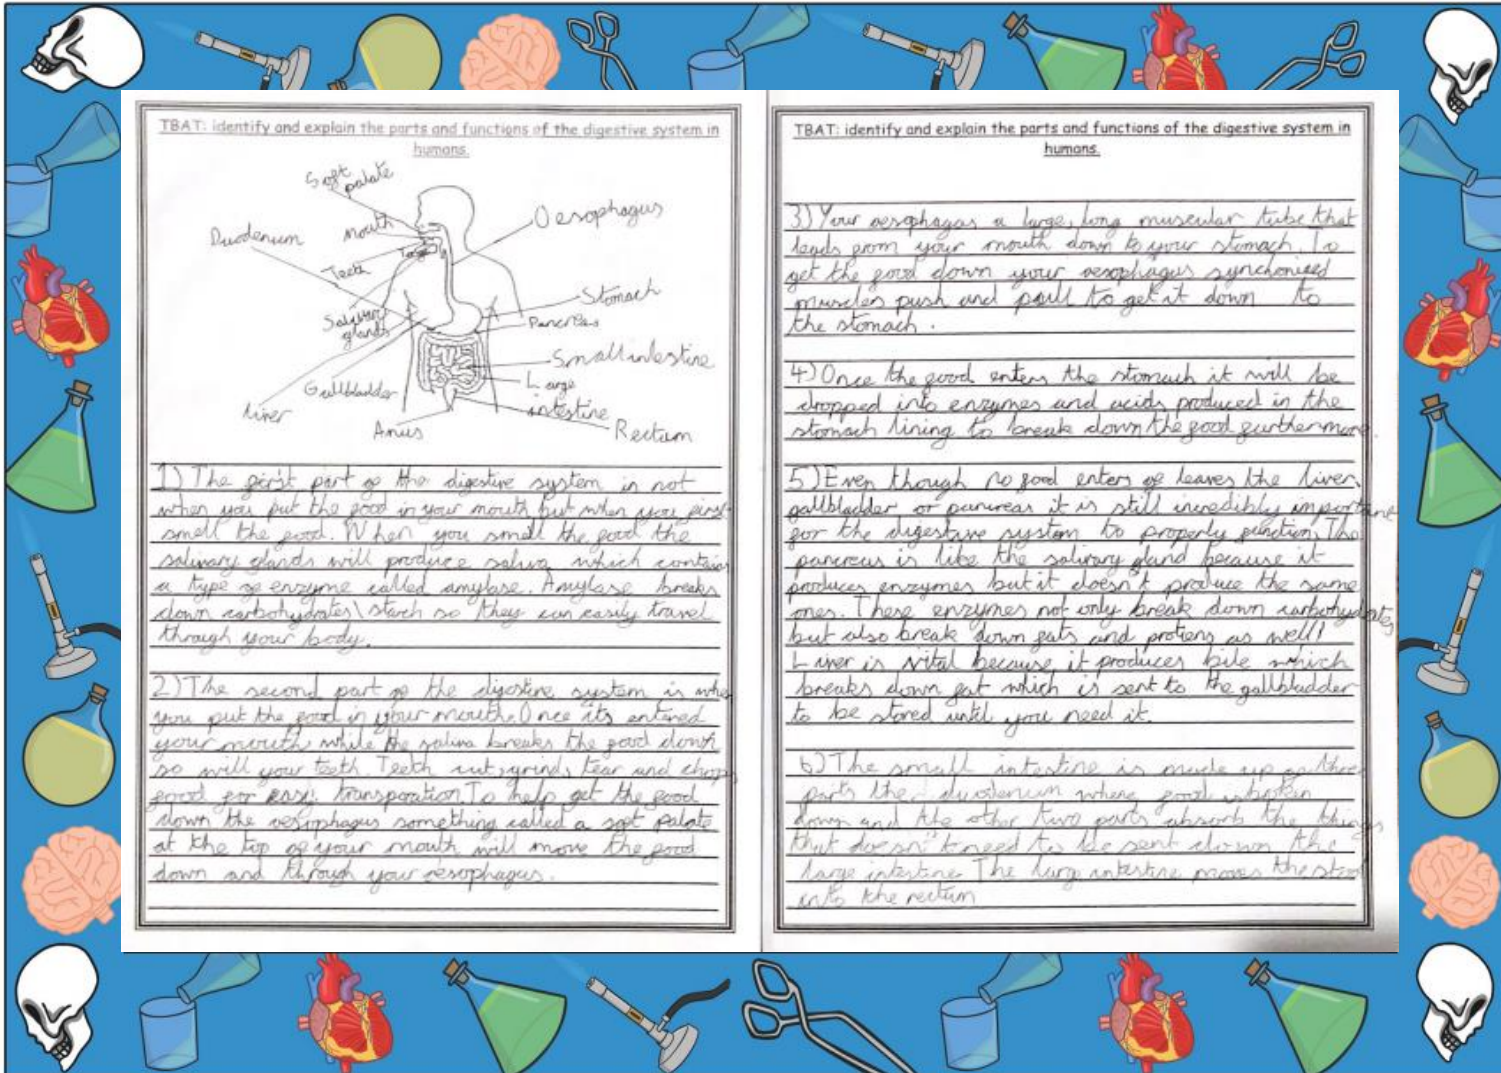 TBAT: identify and explain the parts and functions of the digestive system in
humans.
Soft
palate
Mouth
Oesophagus
Duodenum
Teeth
Salivary
glands
Stomach
Pancreas
Small intestine
Large
intestine
Gallbladder
liver
Anus
Rectum
1) The first part of the digestive system is not
when you put the food in your mouth but when you first
smell the food. When you smell the food the
salivary glands will produce saliva which contains
a type of enzyme called amylase. Amylase breaks
down carbohydrates\ starch so they can easily travel
through your body.
2) The second part of the digestive system is when
you put the food in your mouth. Once its entered
your mouth while the saliva breaks the food down
so will your teeth. Teeth cut, grind, tear and chop
food for easy transporation. To help get the food
down the oesophagus something called a soft palate
at the top of your mouth will move the food
down and through your oesophagus.
TBAT: identify and explain the parts and functions of the digestive system in
humans.
3) Your oesophagus a large, long muscular tube that
leads from your mouth down to your stomach. To
get the food down your oesophagus synchonised
muscles push and pull to get it down to
the stomach.
4) Once the food enters the stomach it will be
dropped into enzymes and acids produced in the
stomach lining to break down the food furthermore.
5) Even though no food enters of leaves the liver,
gallbladder or pancreas it is still incredibly important
for the digestive system to properly function. The
pancreas is like the salivary gland because it
produces enzymes but it doesn't produce the same
ones. These enzymes not only break down carbohydrates
but also break down fats and protiens as well!
Liver is vital because it produces bile which
breaks down fat which is sent to the gallbladder
to be stored until you need it.
6) The small intestine is made up of three
parts the duodenum where food is broken
down and the other two parts absorb the things
that doesn't need to be sent down the
large intestine. The large intestine moves the
into the rectum